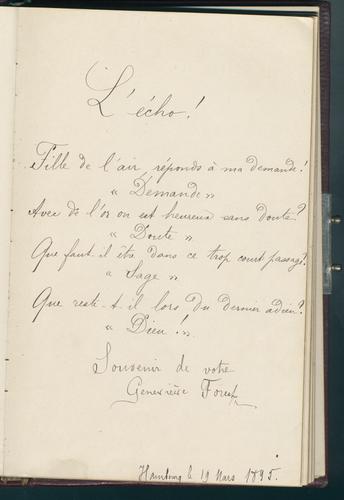 L'écho!
Fille de l'air, réponds à ma demande!
" Demande "
Avec de l'or on est heureux sans doute?
" Doute "
Que faut-il être dans ce trop court passage?
" Sage "
Que reste-t-il lors du dernier adieu?
" Dieu! "
Souvenir de votre
Geneviève
Hambourg le 19 Mars 1895.